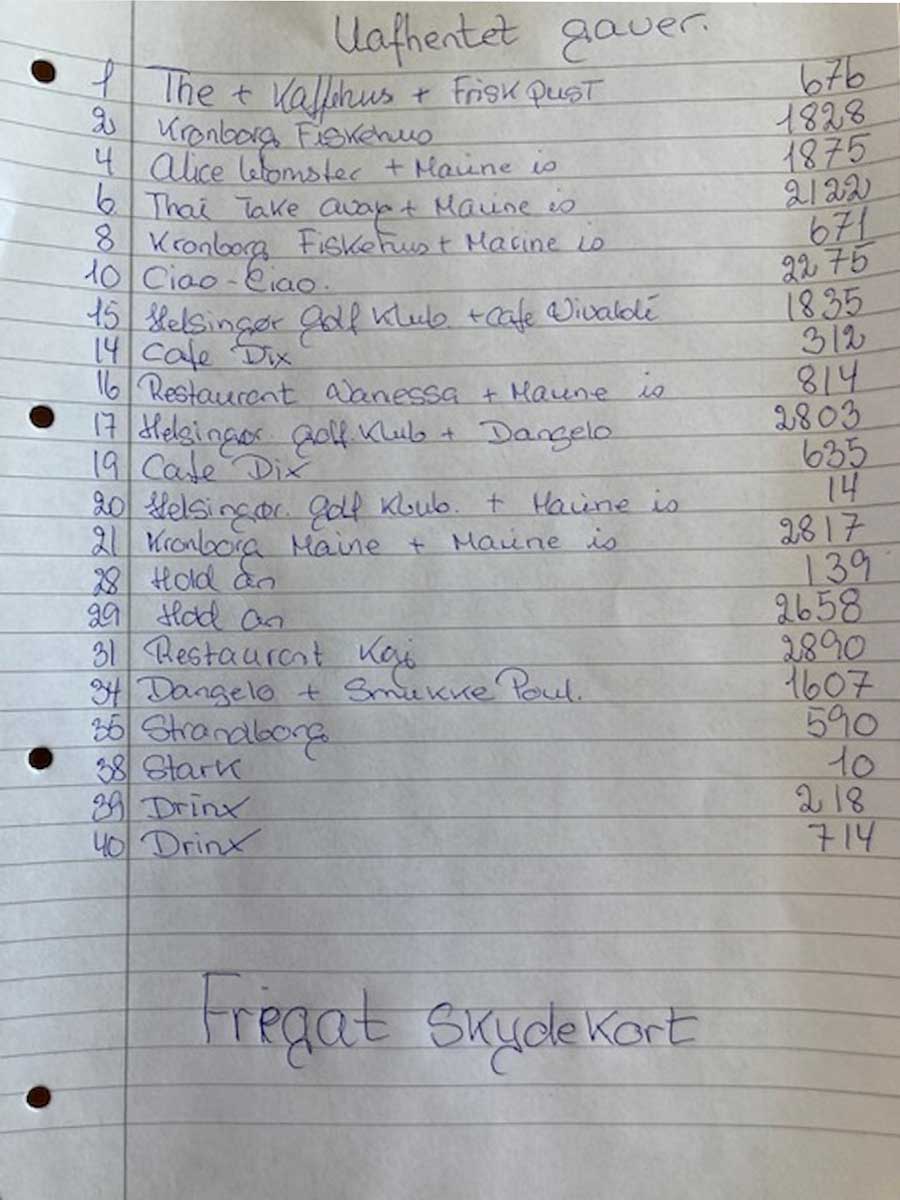 Uafhentet gaver.
1 The + Kaffehus + Frisk pust 676
2 Kronborg Fiskehus 1828
4 Alice + Marine is 1875
6 Thai Take away + Marine is 2122
8 Kronborg Fiskehus + Marine is 671
10 Ciao-Ciao. 2275
15 Helsingør golf Klub + Cafe Vivaldi 1835
14 Cafe Dix 312
16 Restaurant Vanessa + Marine is 814
17 Helsingør. golf. Klub + Dangelo 2803
19 Cafe Dix 635
20 Helsingør. golf Klub. + Marine is 14
21 Kronborg Marine + Marine is 2817
28 Hold an 139
29 Hold an 2658
31 Restaurant Kaj 2890
34 Dangelo + Smukke Poul. 1607
35 Strandborg 590
38 Stark 10
39 Drinx 218
40 Drinx 714
Fregat Skydekort